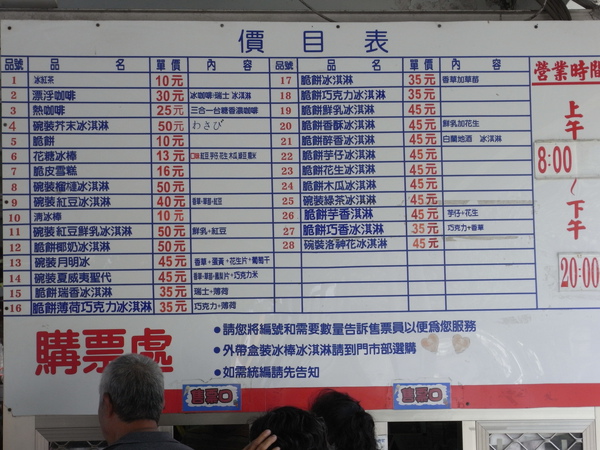 價目表
品號 品名 單價 內容 品號 品名 單價 內容
1 冰紅茶 10元
2 漂浮咖啡 30元 冰咖啡+瑞士 冰淇淋
3 熱咖啡 25元 三合一台糖香濃咖啡
•4 碗裝芥末冰淇淋 50元 わさび
5 脆餅 10元
6 花糖冰棒 13元 紅豆 芋仔 花生 木瓜 綠豆
7 脆皮雪糕 16元
8 碗裝榴槤冰淇淋 50元
•9 碗裝紅豆冰淇淋 40元 香草+草莓+紅豆
10 清冰棒 10元
11 碗裝紅豆鮮乳冰淇淋 50元 鮮乳+紅豆
12 脆餅椰奶冰淇淋 50元
13 碗裝月明冰 45元 香草+蛋黃+花生片+葡萄干
14 碗裝夏威夷聖代 45元 香草+草莓+鳳梨片+巧克力米
15 脆餅瑞香冰淇淋 35元 瑞士+薄荷
•16 脆餅薄荷巧克力冰淇淋 35元 巧克力+薄荷
17 脆餅冰淇淋 35元 香草加草莓
18 脆餅巧克力冰淇淋 35元
19 脆餅鮮乳冰淇淋 45元
20 脆餅香酥冰淇淋 45元 鮮乳加花生
21 脆餅醉香冰淇淋 45元 白蘭地酒 冰淇淋
22 脆餅芋仔冰淇淋 45元
23 脆餅花生冰淇淋 45元
24 脆餅木瓜冰淇淋 45元
25 碗裝綠茶冰淇淋 45元
26 脆餅芋香冰淇淋 45元 芋仔+花生
27 脆餅巧香冰淇淋 35元 巧克力+香草
28 碗裝洛神花冰淇淋 45元
營業時間
上午
8:00
~
下午
20:00
購票處
•請您將編號和需要數量告訴售票員以便為您服務
•外帶盒裝冰棒冰淇淋請到門市部選購
•如需統編請先告知
售票口
售票口